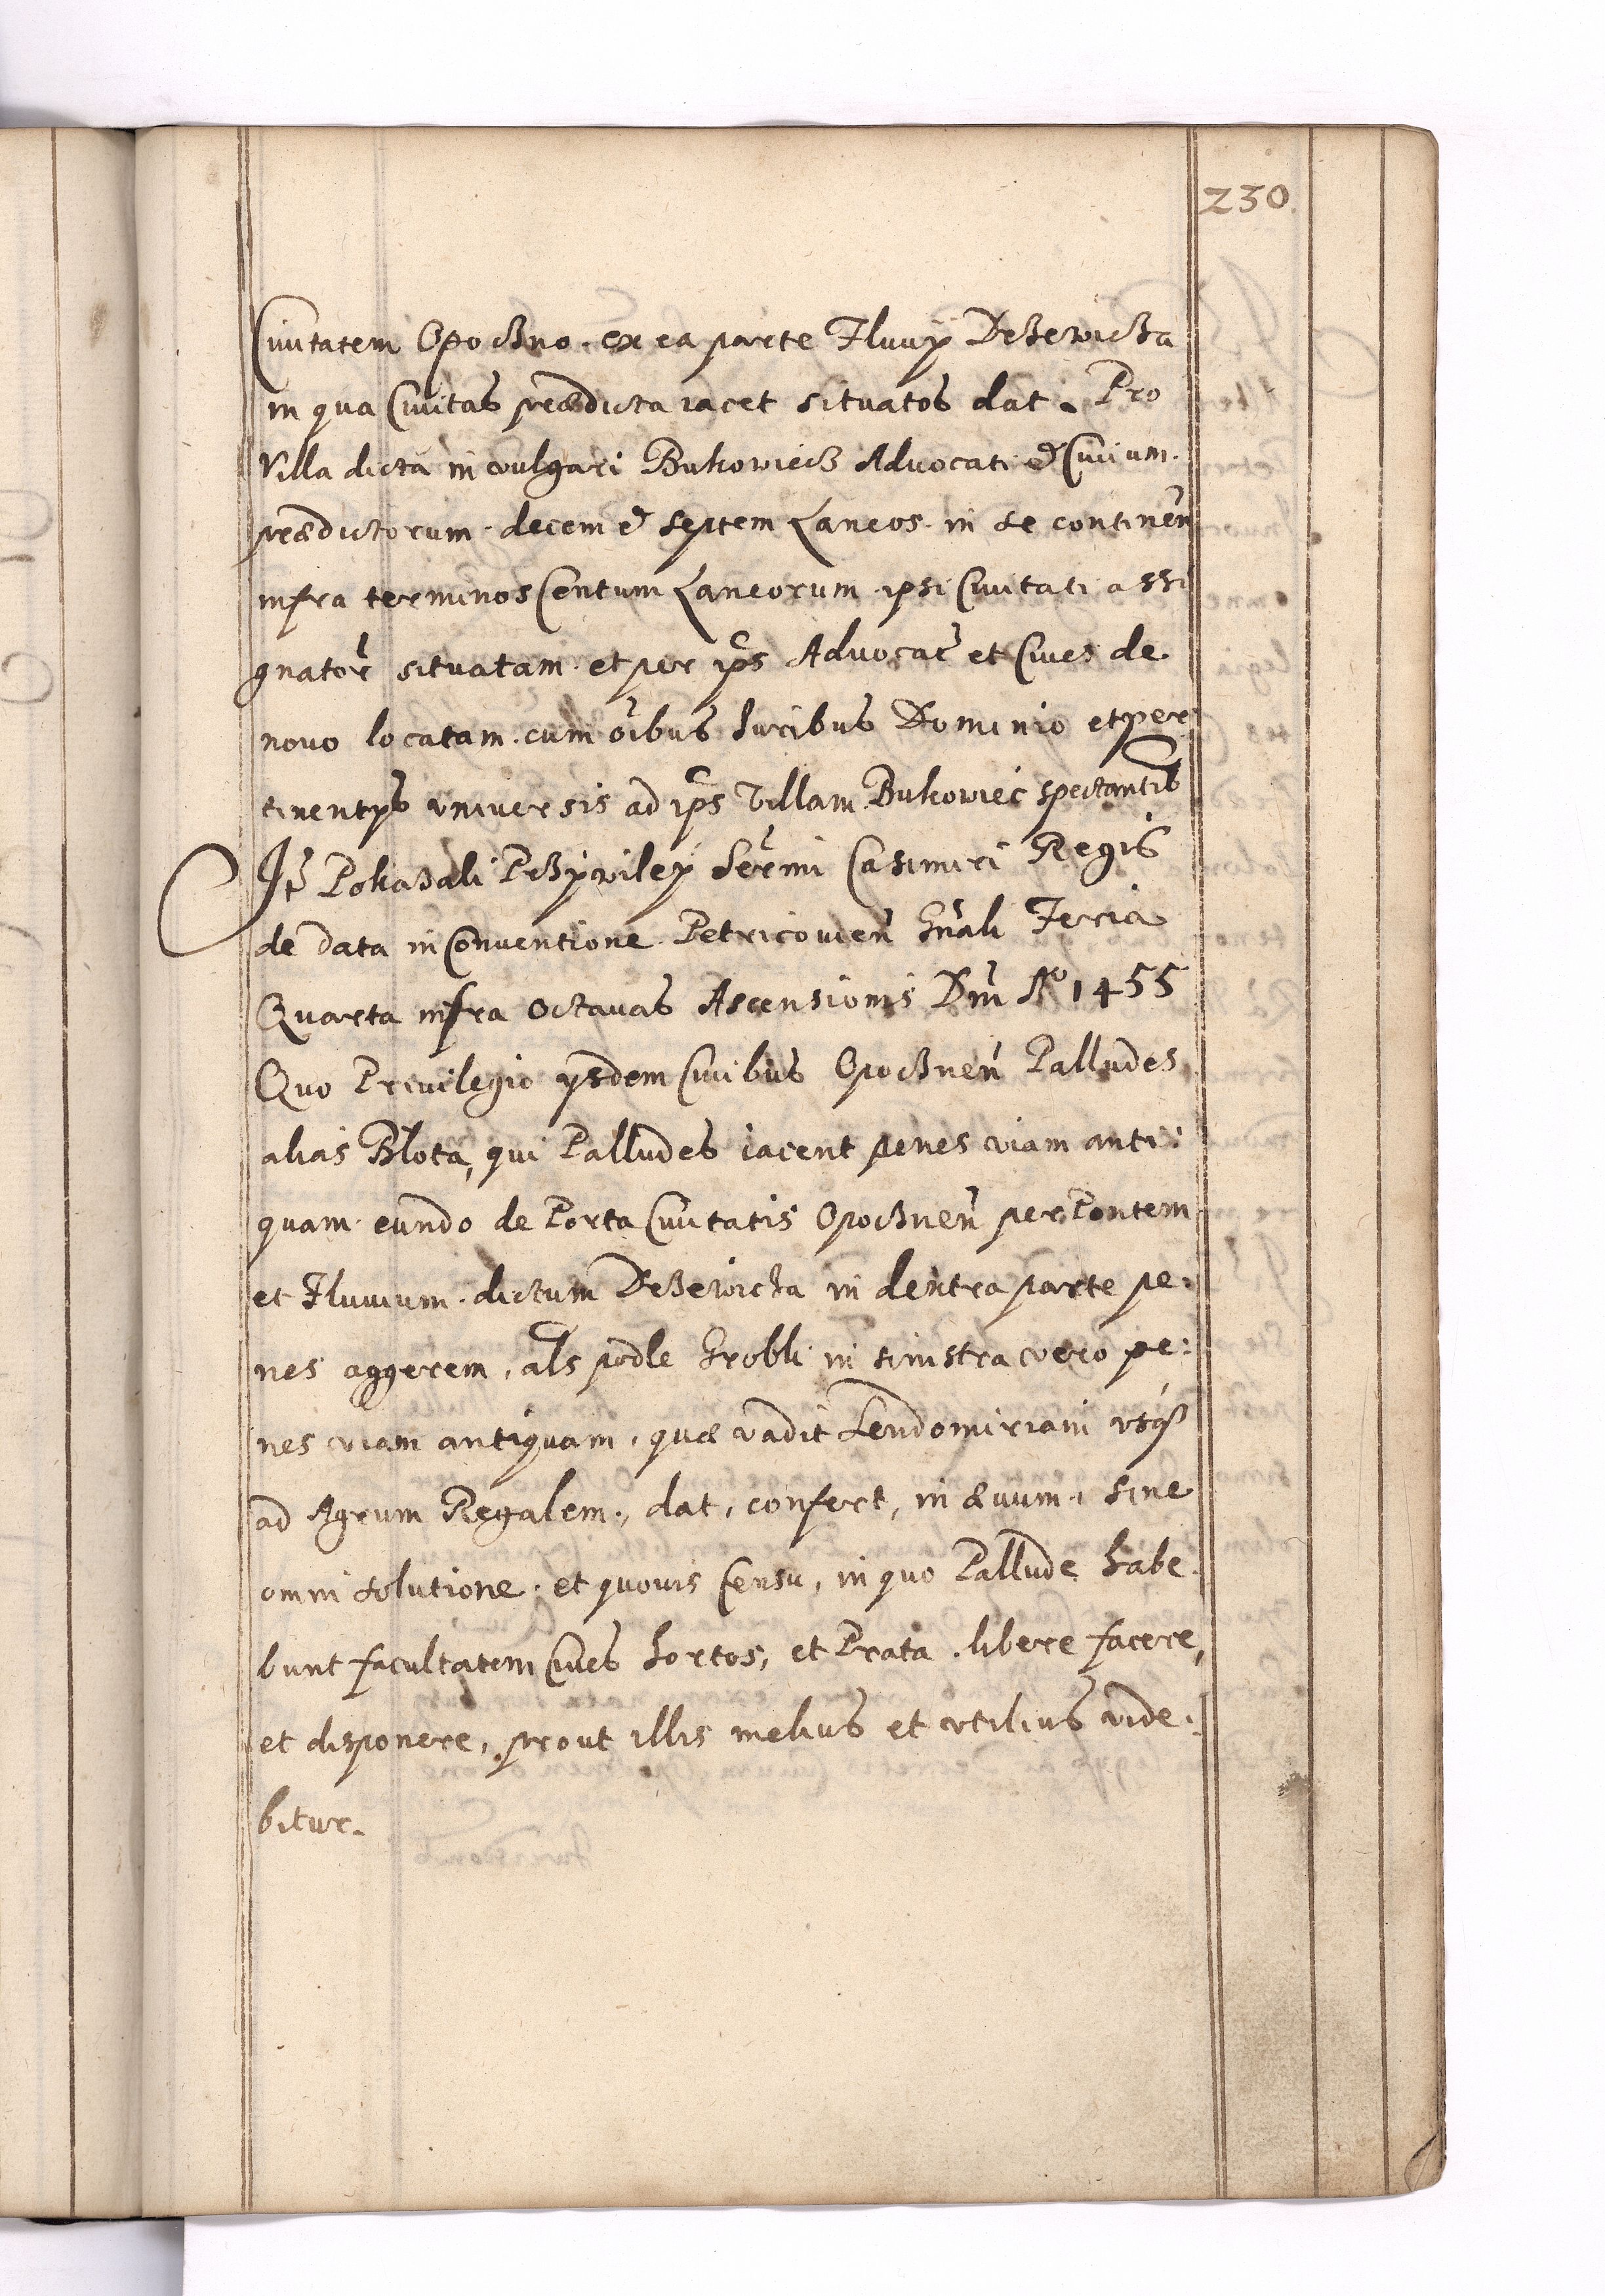 230.
Civitatem Opoczno. ex ea parte Fluvij Drzewiczka
in qua Civitas prædicta iacet situatos dat. Pro
Villa dicta in vulgari Bukowiecz Advocati et Civium.
prædictorum. decem et septem Laneos. in se continen̄
infra terminos Centum Laneorum ipsi Civitati assi
gnator̄ situatam. et per ip̄s Advocat̄ et Cives de
novo locatam. cum oībus Iuribus Dominio et per
tinentijs universis ad ip̄s Villam Bukowiec spectantib
Itē Pokazali Przywiley Serm̄i Casimiri Regis
de data in Conventione Petricovien̄ Gn̄ali Feria
Quarta infra Octavas Ascensionis Dn̄i Aº 1455
Quo Privilegio ijsdem Civibus Opocznen̄ Palludes
alias Blota, qui Palludes iacent penes viam anti:
quam. eundo de Porta Civitatis Opocznen̄ per Pontem
et Fluvium. dictum Drzewiczka in dextra parte pe:
nes aggerem, als podle Grobli in sinistra vero pe:
nes viam antiquam, quæ vadit Sendomiriam usq
ad Agrum Regalem., dat, confert, in ævum., sine
omni solutione. et quovis Censu, in quo Pallude habe.
bunt facultatem Cives hortos, et Prata. libere facere,
et disponere, prout illis melius et utilius vide:
bitur.